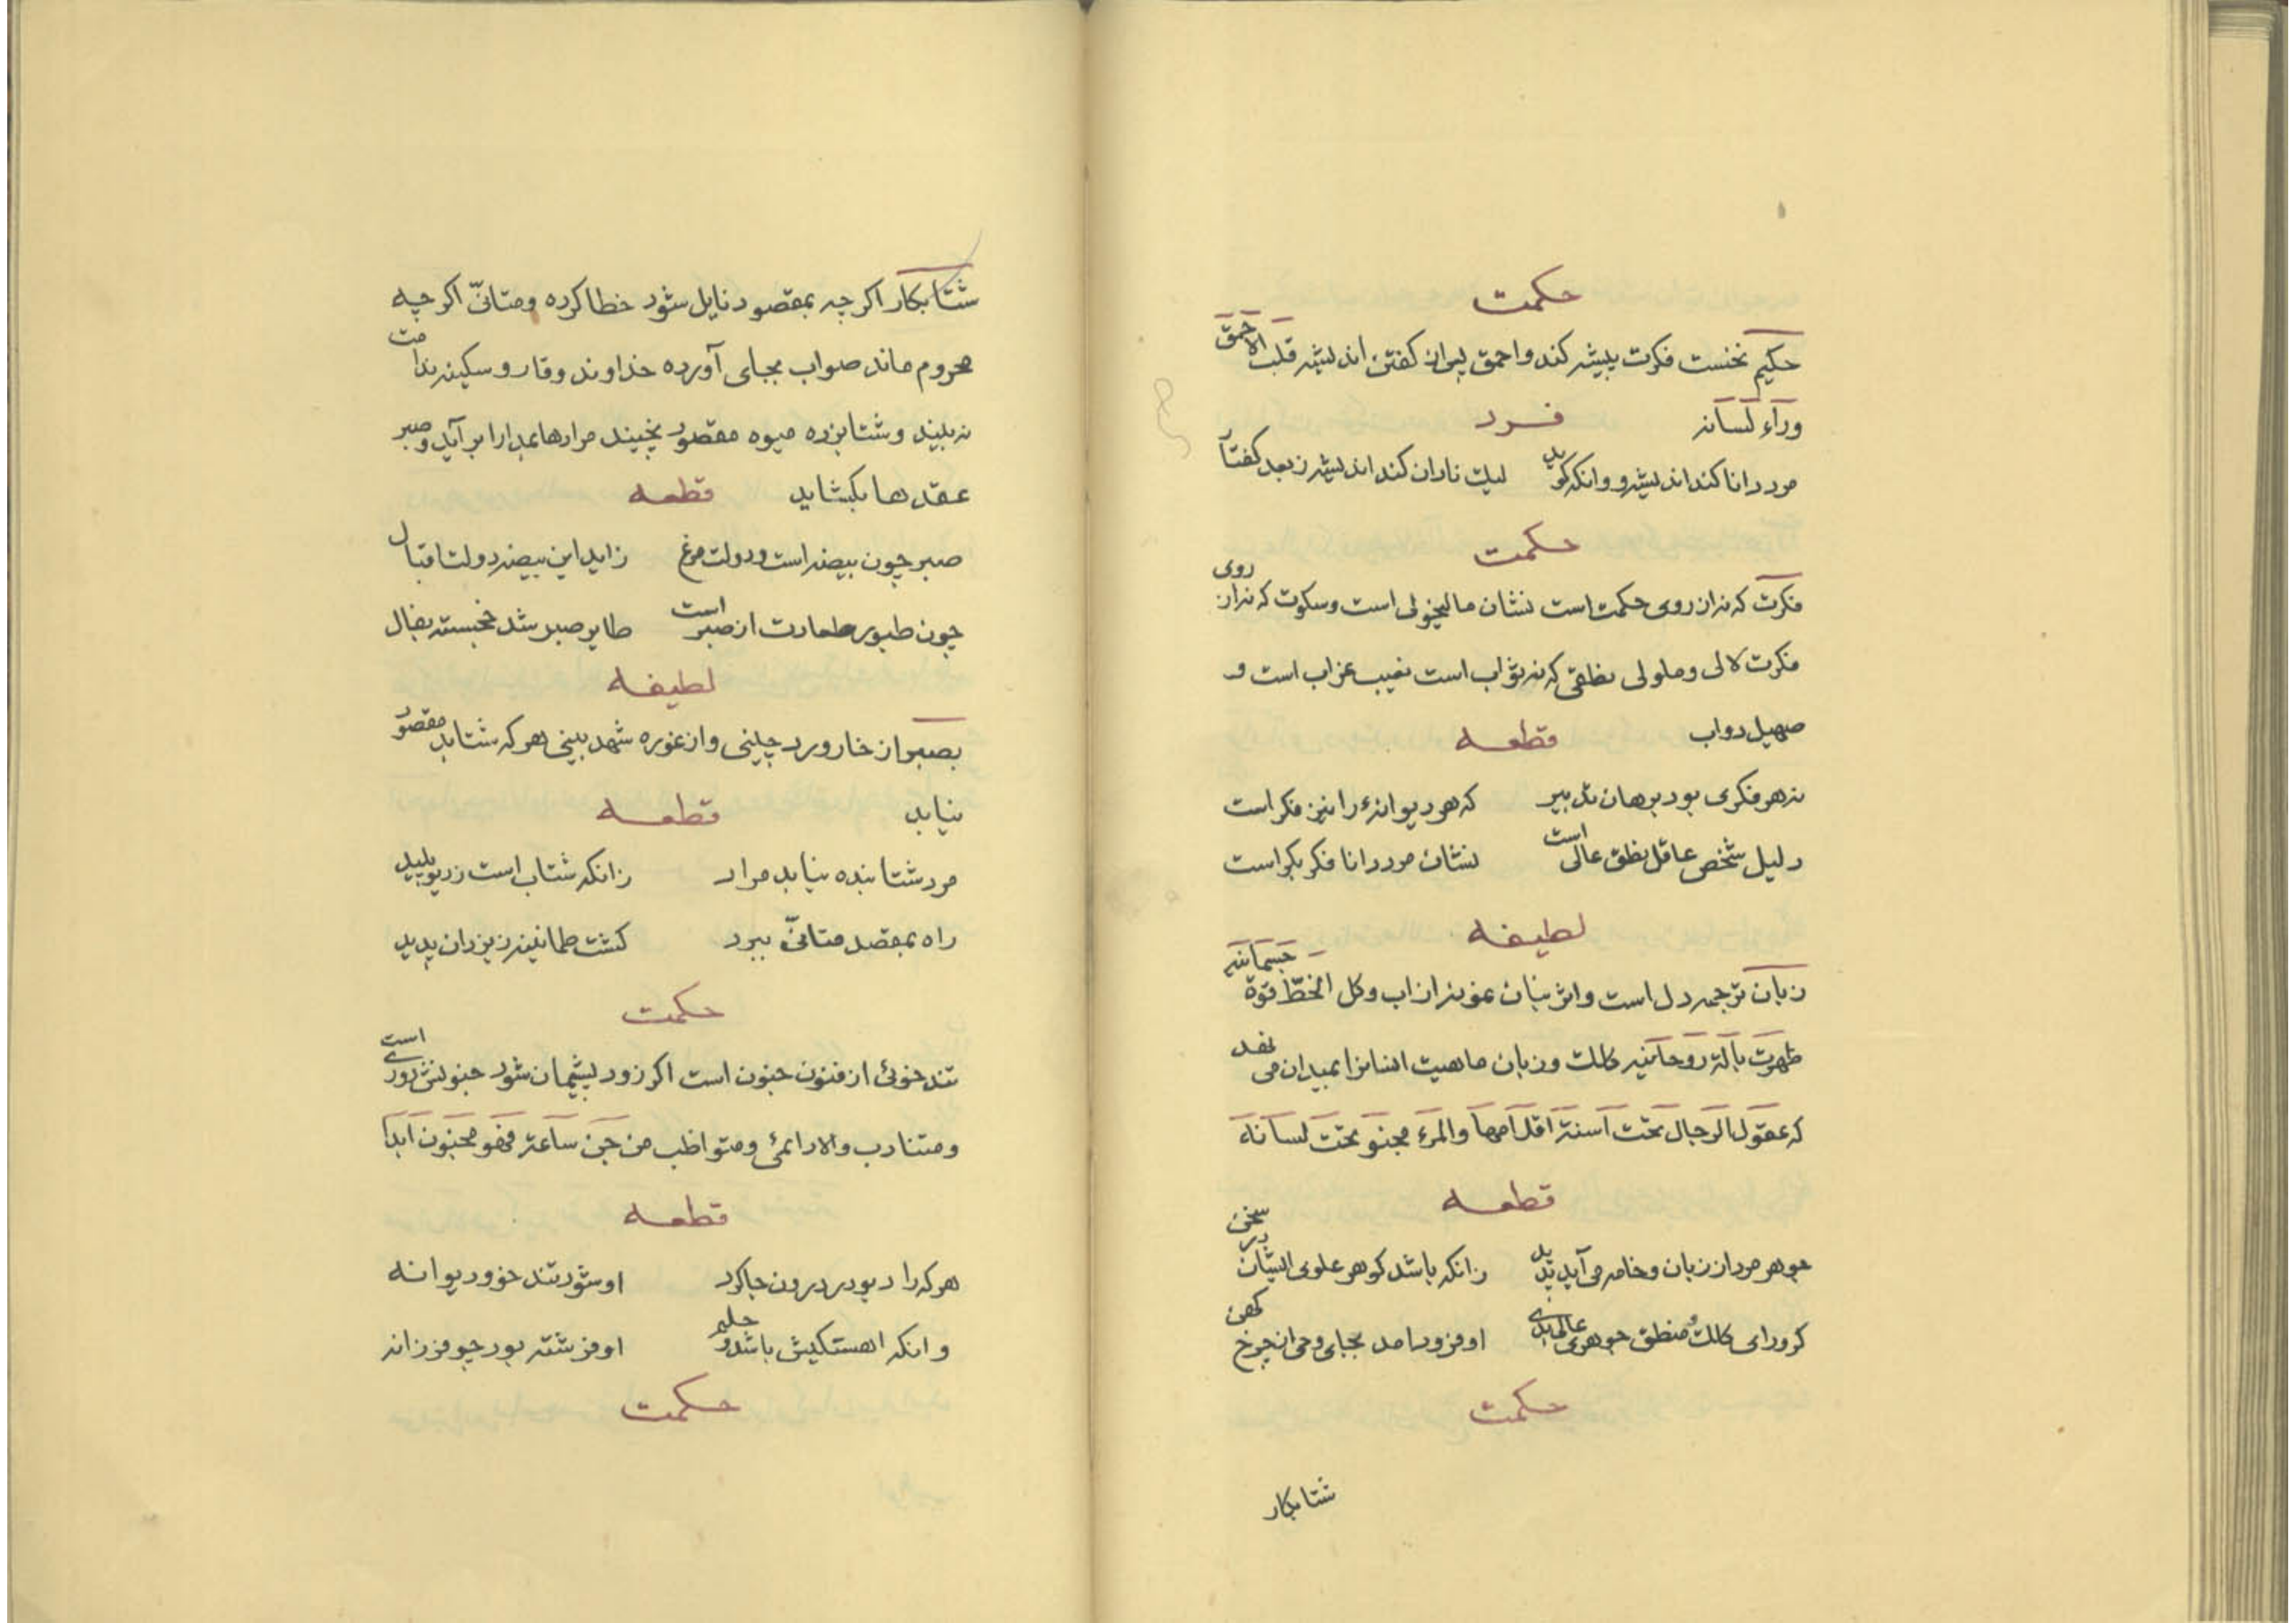 حکمت
حکیم نخست فکرت پیشه کند و احمق پس از کفتن اندیشه قلب الاحمق
وراء لسانه فرد
مرد دانا کند اندیشه و وانکه کوید لیک نادان کند اندیشه ز بعد کفتار
حکمت
فکرت که نه از روی حکمت است نشان مالیخولی است و سکوت که نه از روی
فکرت لالی و ملولی نطقی که نه ثواب است نعیب غراب است و
صهیل دواب قطعه
نه هر فکری بود برهان تدبیر که هر دیوانهٔ را نیز فکر است
دلیل شخص عاقل نطق عالی است نشان مرد دانا فکر بکر است
لطیفه
زبان ترجمه دل است و اثر بنان الخطّ قوة جسمانیه
ظهرت بآلة روحانیه کلک و زبان ماهیت انسانرا میدان می
که عقول الرجال تحت اسنة اقلامها والمرء مخبو تحت لسانه
قطعه
جوهر مرد از زبان و خامه می آید پدید زانکه باشد کوهر علوی ایشان در سخن
کر ورای کلک و منطق جوهری عالی بدی او فرود آمد بجای وحی از چرخ کهن
حکمت
شتابکار
شتابکار اکرچه بمقصود نایل شود خطا کرده و متانّی اکرچه
محروم ماند صواب بجای آورده خداوند وقار و سکینه ندامت
نه بیند و شتابزده میوه مقصود نچیند مرادها بمدارا برآید و صبر
عقدها بکشاید قطعه
صبر چون بیضه است و دولت مرغ زاید این بیضه دولت اقبال
چون طیور طهارت از صبر است طایر صبر شد خجسته بفال
لطیفه
بصبر از خار ورد چینی و از غوره شهد بینی هر که شتابد مقصود
نیابد قطعه
مرد شتابنده نیابد مراد زانکه شتاب است ز دیو پلید
راه بمقصد متانّی ببرد کشت طمانینه ز یزدان پدید
حکمت
تندخوئی از فنون جنون است اکر زود پشیمان شود جنونش دوری است
و متنادب والا دائمی و متواظب من جن ساعة فهو مجنون ابدا
قطعه
هر که را دیو در درون جا کرد او شود تند خو و دیوانه
وانکه اهستکیش باشد و حلم او فرشته بود چو فرزانه
حکمت